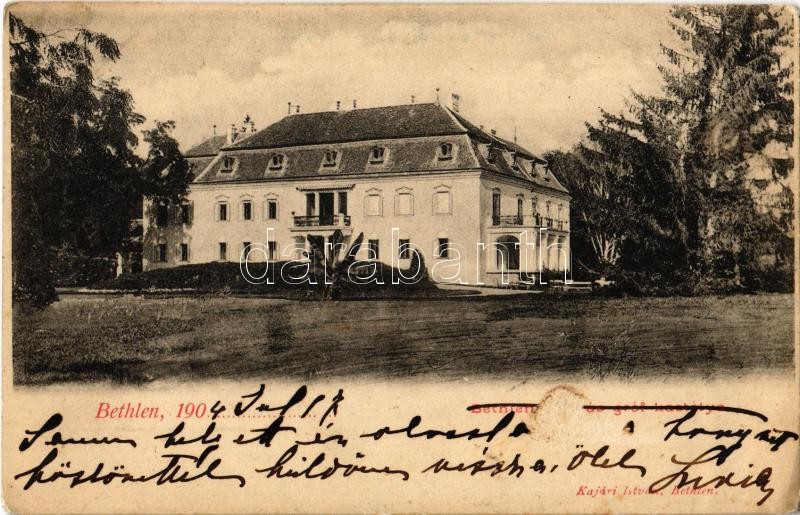 darabanth
Bethlen, 1904 Jul 17
Bethlen gróf kastélya
Sanna helyett én olvasta a könyvet
köszönettel küldöm vissza, ölel
Kajári István, Bethlen.